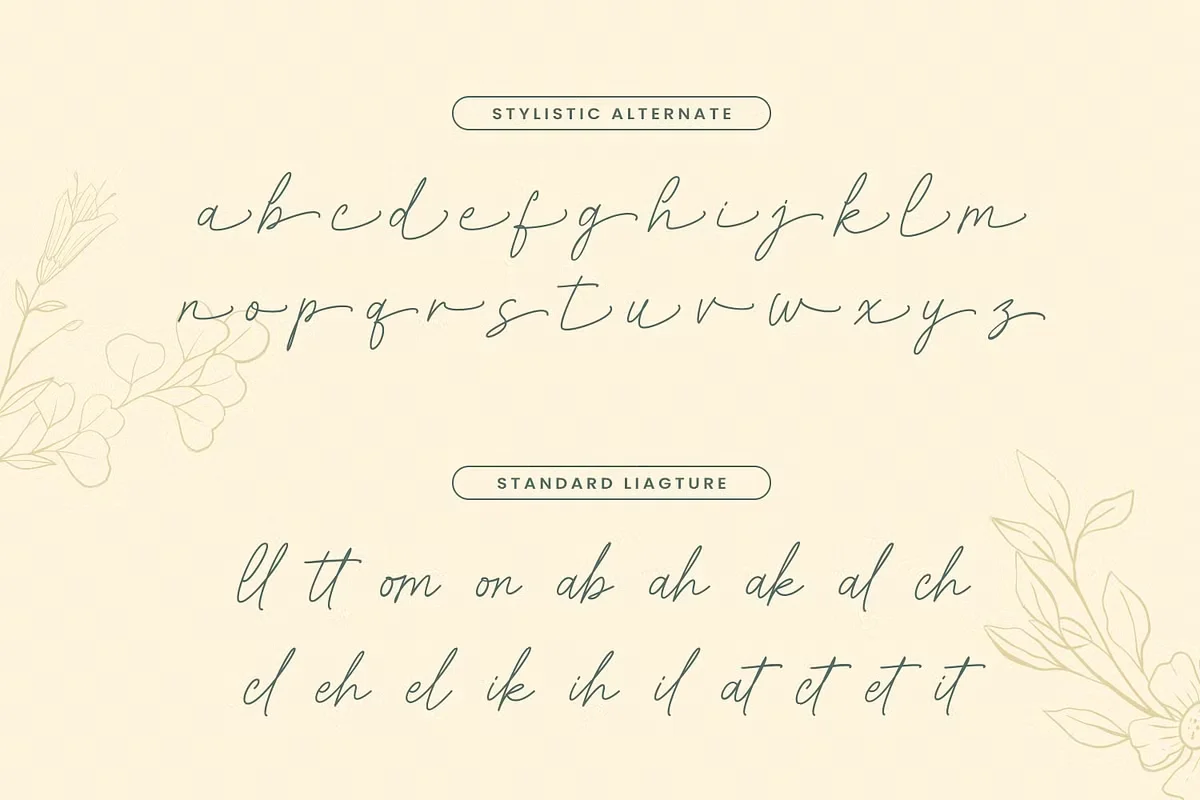 STYLISTIC ALTERNATE
a b c d e f g h i j k l m
n o p q r s t u v w x y z
STANDARD LIAGTURE
ll tt om on ab ah ak al ch
cl eh el ik ih il at ct et it